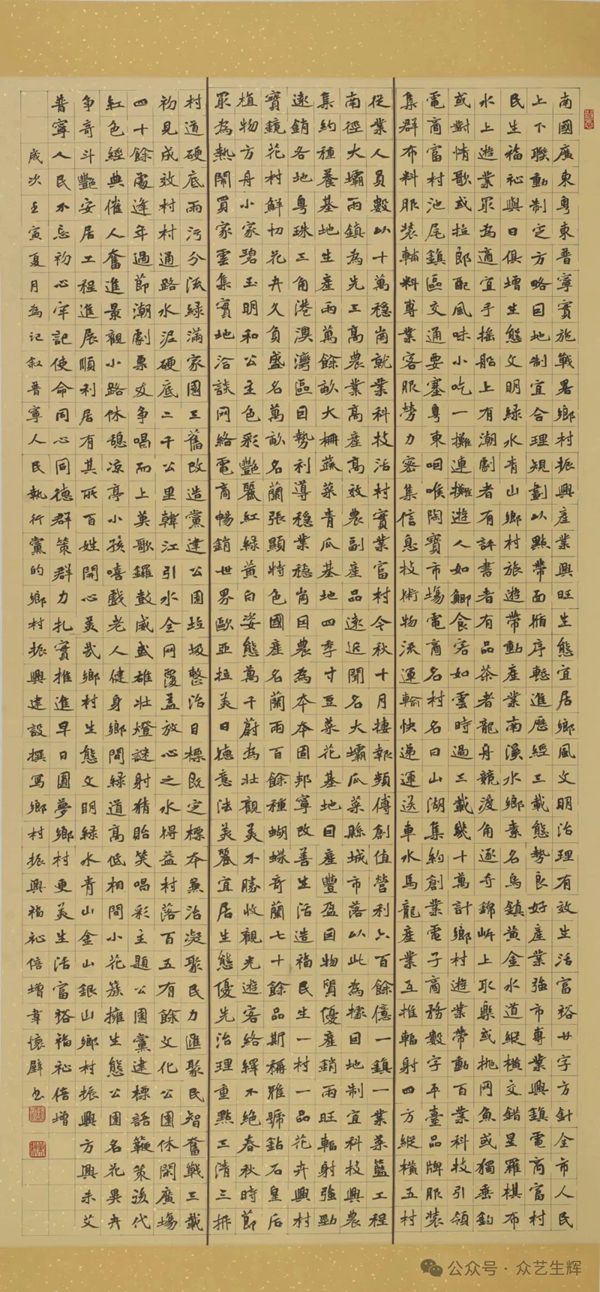 南國廣東粤東普寧實施戰畧鄉村振興產業興旺生態宜居鄉風文明治理有效生活富裕廿字方針全市人民
上下聯動制定方略因地制宜合理規劃以點帶面循序輕進歷經三載態勢良好產業強市專業興鎮電商富村
民生福祉與日俱增生態文明綠水青山鄉村旅遊帶動產業南溪水鄉素名烏鎮黃金水道縱橫交錯星羅棋布
水上遊業最為適宜手搖船上有潮劇者有評書者有品茶者龍舟競渡角逐奇錦岍上取樂或拋网魚或獨垂釣
或對情歌或拉郎配風味小吃一攤連攤遊人如鯽食客如雲時過三載幾十萬計鄉村遊業帶動百業科技引領
電商富村池尾鎮區交通要塞粤東咽喉陶寶市場電商名村名曰山湖集約創業電子商務數字平臺品牌服裝
集群布料服裝輔料專業客服勞力密集信息技術物流運輸快遞運送車水馬龍產業互推輻射四方縱橫五村
從業人員數以十萬穩崗就業科技活村實業富村今秋十月捷報頻傳創值營利六百餘億一鎮一業菜籃工程
南徑大壩兩鎮為先工高農業高產高效農副產品遠近聞名大壩瓜菜縣城市落以此為樣因地制宜科技興農
集約種養基地生產萬餘畝大柵蔬菜青瓜基地四季寸豆菜花基地生產豐盈因物產銷兩旺輻射強勁
遠銷各地粤珠三角港澳灣區因勢利導菜穩業穩崗因農為本本固邦寧改善生活造福民生一村一品花卉興村
寶鏡花村鮮切花卉久負盛名萬畝名蘭張顯特色國色名蘭兩百餘種蝴蝶奇蘭七十餘品斯稱雅號鉆石皇后
植物方舟小家碧玉明和公主色彩艷麗紅綠黄白姿態萬千蔚為壯觀美不勝收觀光遊客絡繹不絕春秋時節
眾為熱鬧買家雲集實地洽談网絡電商暢銷世界歐亞拉美日德意法美麗宜居生態優先治理重點三清三拆
村道硬底雨污分流綠滿家園三舊改造黨建公園垃圾整治目標既定標本兼治凝聚民力匯聚民智奮戰三載
初見成效村村通路水泥硬底二千公里韓江引水全网覆盖放心之水得益村落百五有餘文化公園休閑廣場
四十餘處逢年過節潮劇票友争唱而上英歌鑼鼓威武雄壯燈謎射猜貽笑唱彩主題公園黨建標語鞭策後代
紅色經典催人奮進景觀小路休憩凉亭小孩嘻戲老人健身鄉間綠道高低相間小花簇擁生態公園名花異卉
争奇斗艷安居工程進展順利居有其所百姓開心美哉鄉村生態文明綠水青山金山銀山鄉村振興方興未艾
普寧人民不忘初心牢記使命同心同德群策群力扎實推進早日圓夢鄉村更美生活富裕福祉倍增
歲次壬寅夏月為記叙普寧人民執行黨的鄉村振興建設撰寫鄉村振興福祉倍增韋懷
公众号·众艺生辉